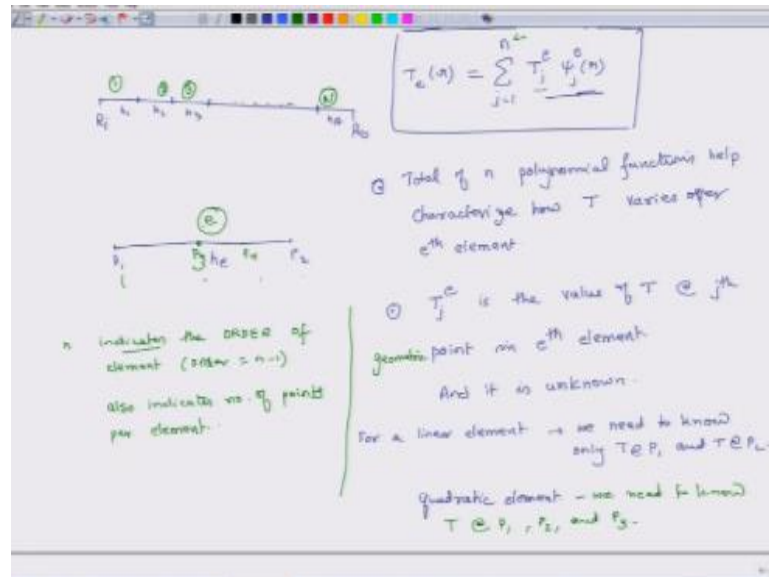 ① ② ③ N
R₁ h₁ h₂ h₃ R₀
T_e(r) = Σ_{j=1}^{n} T_j^e ψ_j^e(r)
e
P₁ P₃ h_e P₄ P₂
n indicates the ORDER of
element (Order = n-1)
also indicates no. of points
per element.
Total of n polynomial functions help
characterize how T varies over
eth element
T_j^e is the value of T @ jth
geometric point in eth element
And it is unknown.
For a linear element → we need to know
only T@P₁ and T@P₂.
quadratic element - we need to know
T @ P₁, P₂, and P₃.